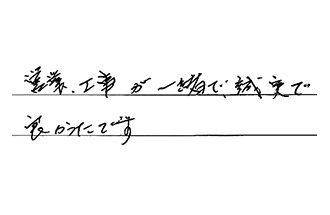 営業、工事が一緒で、誠実で
良かったです